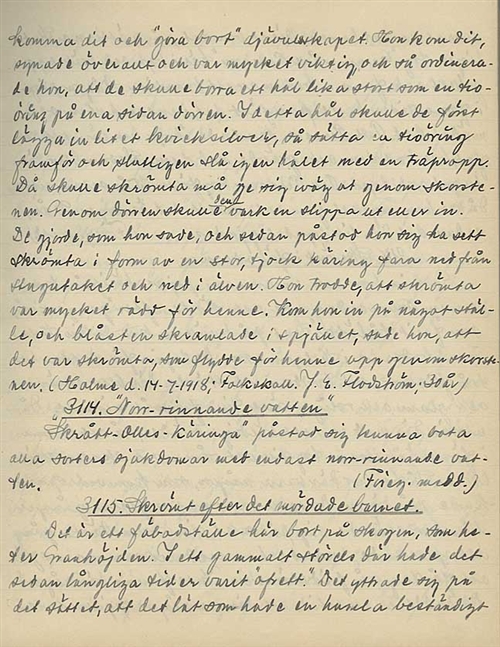 komma dit och "göra bort" djävulskapet. Hon kom dit,
synade överallt och var mycket viktig, och så ordinera-
de hon, att de skulle borra ett hål lika stort som en tio-
öring på ena sidan dörren. I detta hål skulle de först
lägga in litet kvicksilver, så sätta en tioöring
framför och slutligen slå igen hålet med en träpropp.
Då skulle skrömta må ge sig iväg ut genom skorste-
nen. Genom dörren skulle den varken slippa ut eller in.
De gjorde, som hon sade, och sedan påstod hon sig ha sett
skrömta i form av en stor, tjock käring fara ned från
stugutaket och ned i älven. Hon trodde, att skrömta
var mycket rädd för henne. Kom hon in på något stäl-
le, och blåsten skramlade i spjället, sade hon, att
det var skrömta, som flydde för henne upp genom skorste-
nen. (Holme d. 14-7-1918; Folkskall. J. E. Flodström, 30 år)
3114. "Norr-rinnande vatten"
"Skrått-Olles-Käringa" påstod sig kunna bota
alla sorters sjukdomar med endast norr-rinnande vat-
ten. (Föreg. medd.)
3115. Skrömt efter det mördade barnet.
Det är ett fäbodställe här bort på skogen, som he-
ter Granhöjden. I ett gammalt störels där hade det
sedan långliga tider varit "ofrett". Det yttrade sig på
det sättet, att det lät som hade en humla beständigt